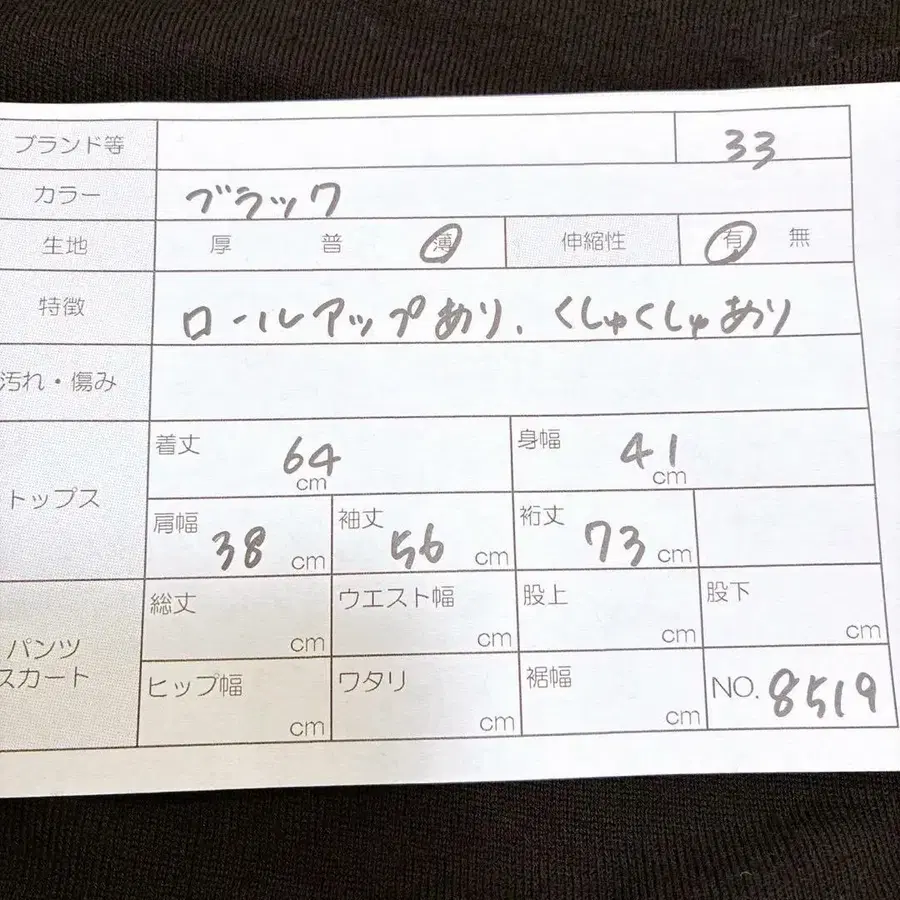 ブランド等 33
カラー ブラック
生地 厚 普 薄 伸縮性 有 無
特徴 ロールアップあり、くしゅくしゅあり
汚れ・傷み
トップス 着丈 64 cm 身幅 41 cm
肩幅 38 cm 袖丈 56 cm 裄丈 73 cm
パンツ スカート 総丈 cm ウエスト幅 cm 股上 cm 股下 cm
ヒップ幅 cm ワタリ cm 裾幅 cm NO. 8519